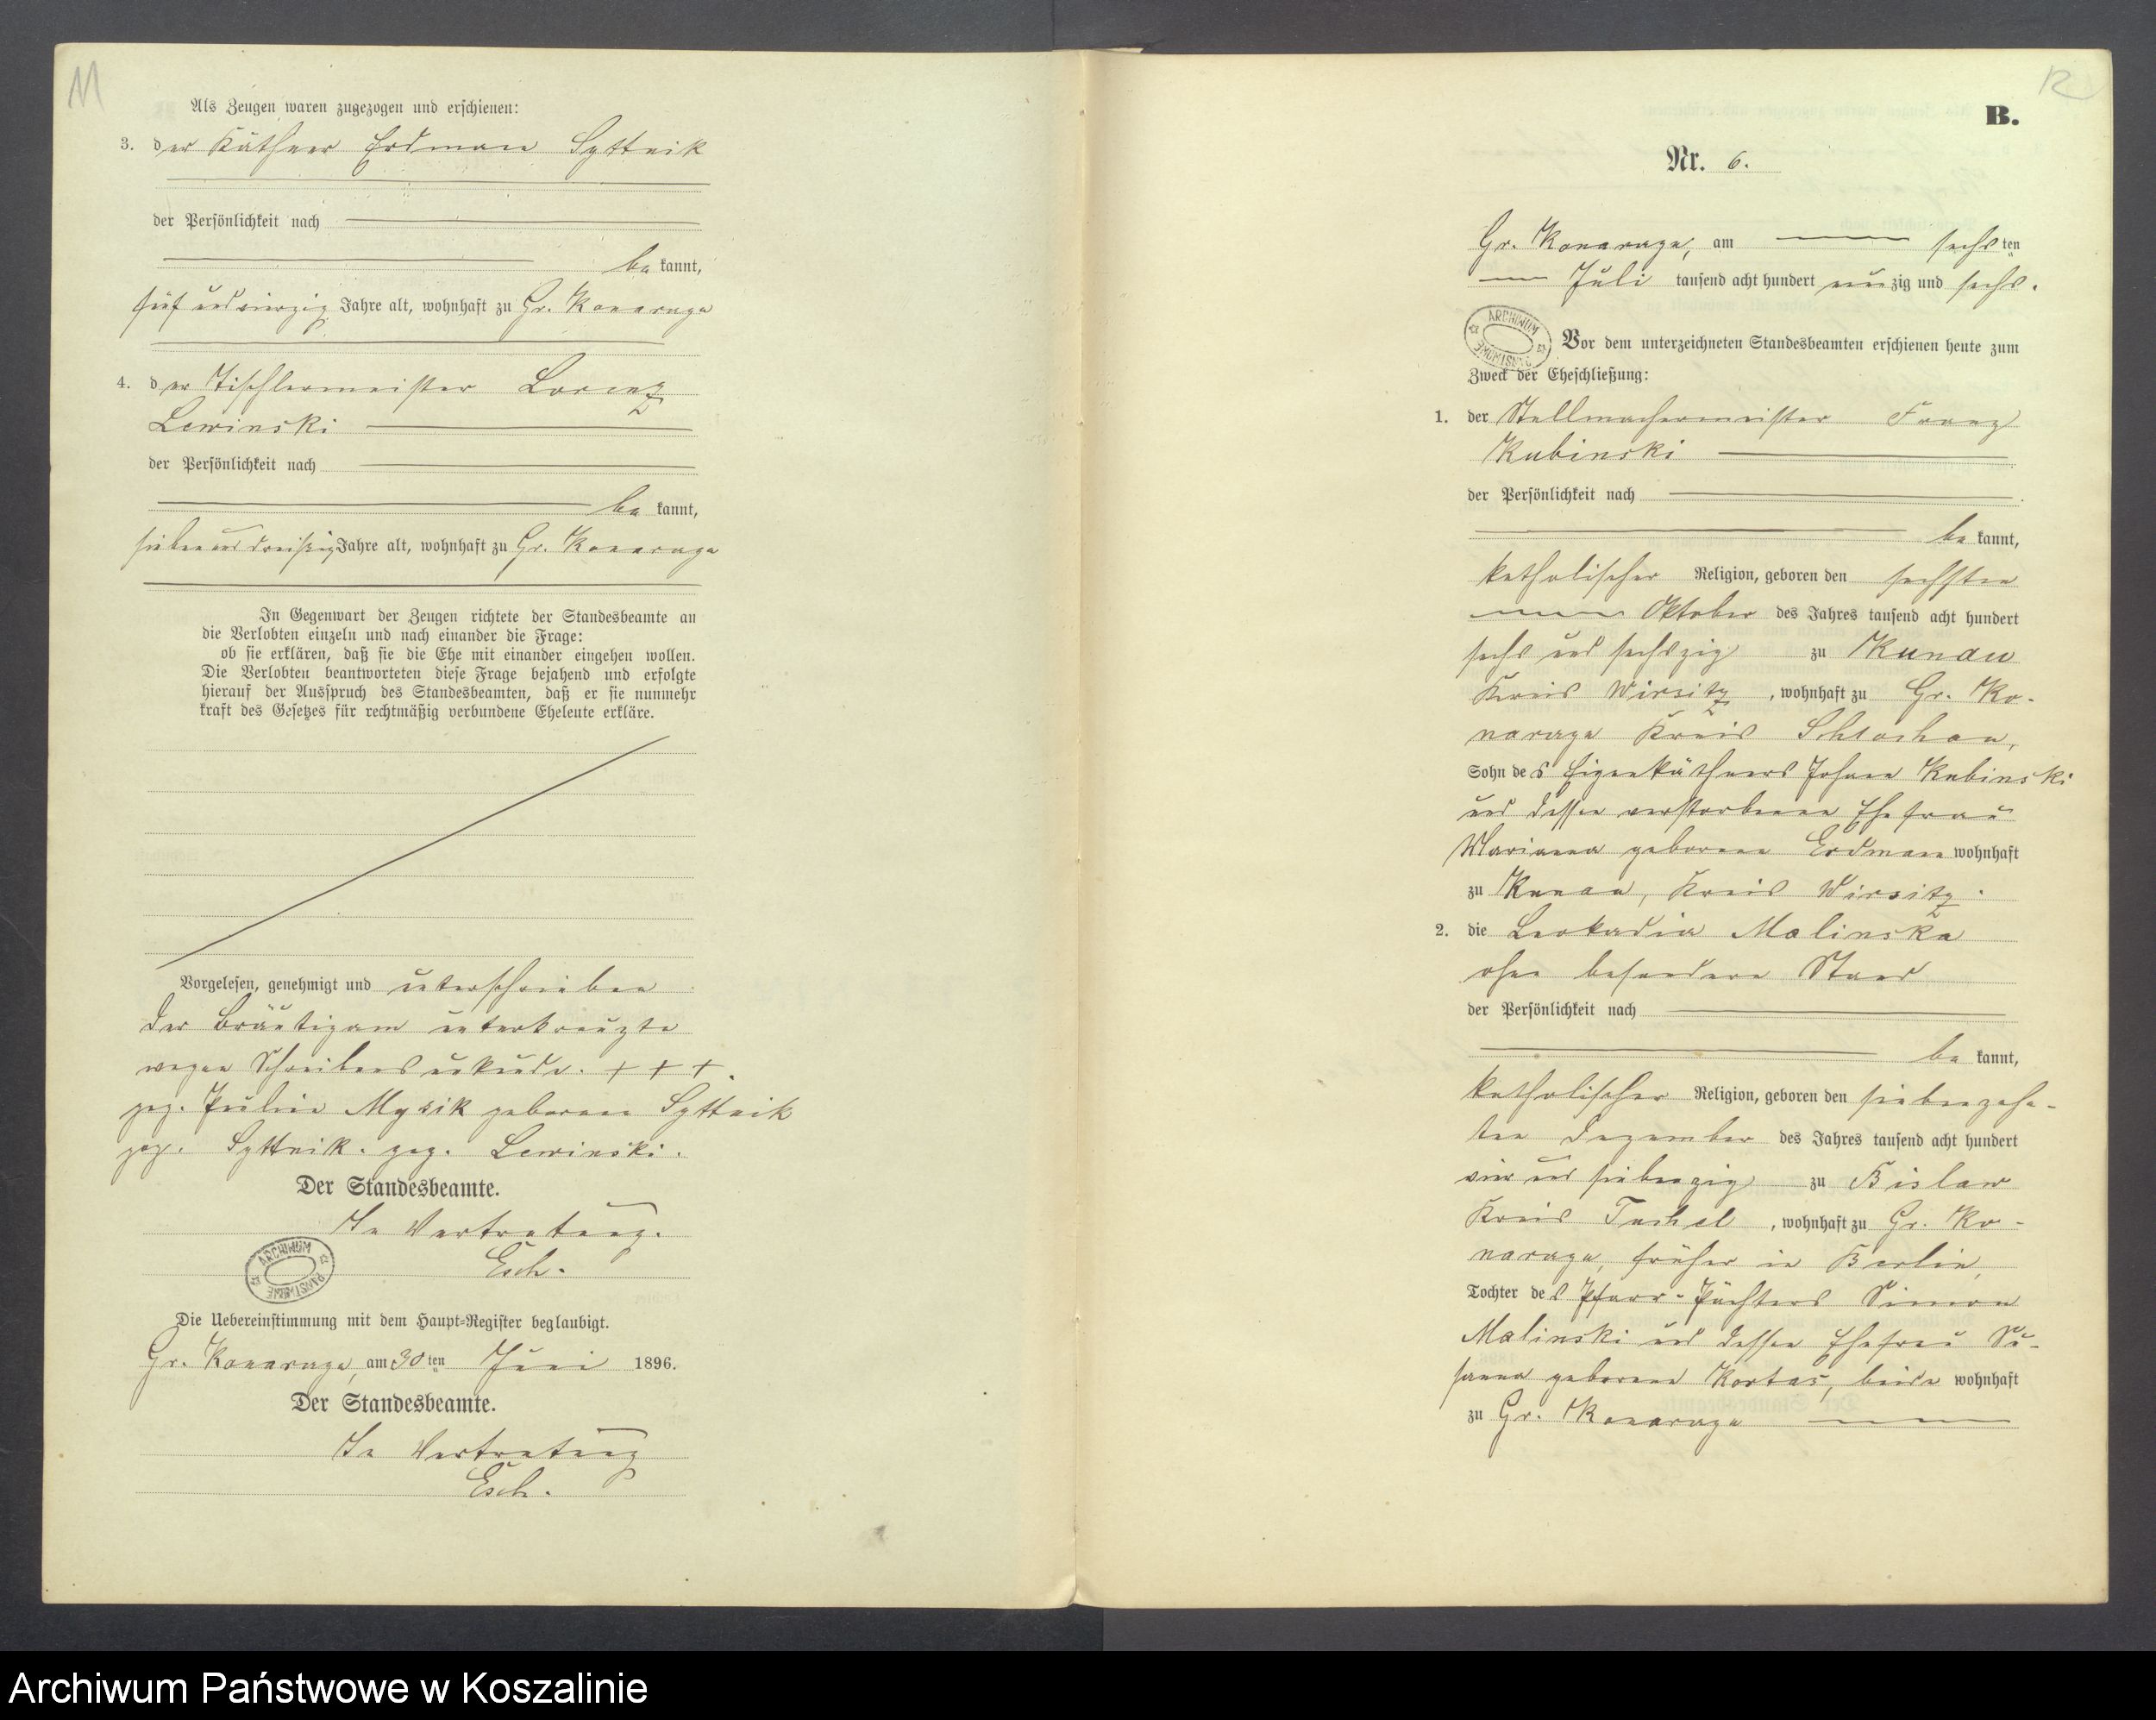 11
Als Zeugen waren zugezogen und erschienen:
3. der Käthner Erdmann Syttnik
der Persönlichkeit nach
bekannt,
fünf und vierzig Jahre alt, wohnhaft zu Gr. Konarzyn
4. der Tischlermeister Lorenz
Lewinski
der Persönlichkeit nach
bekannt,
sieben und dreißig Jahre alt, wohnhaft zu Gr. Konarzyn
In Gegenwart der Zeugen richtete der Standesbeamte an
die Verlobten einzeln und nach einander die Frage:
ob sie erklären, daß sie die Ehe mit einander eingehen wollen.
Die Verlobten beantworteten diese Frage bejahend und erfolgte
hierauf der Ausspruch des Standesbeamten, daß er sie nunmehr
kraft des Gesetzes für rechtmäßig verbundene Eheleute erkläre.
Vorgelesen, genehmigt und unterschrieben
Der Bräutigam unterkreuzte
wegen Schreibensunkunde. + + +.
gez. Pauline Mysik geborene Syttnik
gez. Syttnik. gez. Lewinski.
Der Standesbeamte.
In Vertretung.
Esch.
ARCHIWUM PAŃSTWOWE
Die Uebereinstimmung mit dem Haupt-Register beglaubigt.
Gr. Konarzyn, am 30ten Juni 1896.
Der Standesbeamte.
In Vertretung
Esch.
12
B.
Nr. 6.
Gr. Konarzyn, am sechsten
Juli tausend acht hundert neunzig und sechs.
ARCHIWUM PAŃSTWOWE
Vor dem unterzeichneten Standesbeamten erschienen heute zum
Zweck der Eheschließung:
1. der Stellmachermeister Franz
Kubinski
der Persönlichkeit nach
bekannt,
katholischer Religion, geboren den sechsten
Oktober des Jahres tausend acht hundert
sechs und sechszig zu Kunau
Kreis Wirsitz, wohnhaft zu Gr. Ko-
narzyn Kreis Schlochau,
Sohn des Eigenkäthners Johann Kubinski
und dessen verstorbenen Ehefrau
Marianna geborene Erdmann wohnhaft
zu Kunau, Kreis Wirsitz.
2. die Leokadia Malinska
ohne besonderen Stand
der Persönlichkeit nach
bekannt,
katholischer Religion, geboren den siebenzehn-
ten Dezember des Jahres tausend acht hundert
vier und siebenzig zu Bislaw
Kreis Tuchel, wohnhaft zu Gr. Ko-
narzyn, früher in Berlin,
Tochter des Pfarr-Pächters Simon
Malinski und dessen Ehefrau Su-
sanna geborene Kortas, beide wohnhaft
zu Gr. Konarzyn
Archiwum Państwowe w Koszalinie